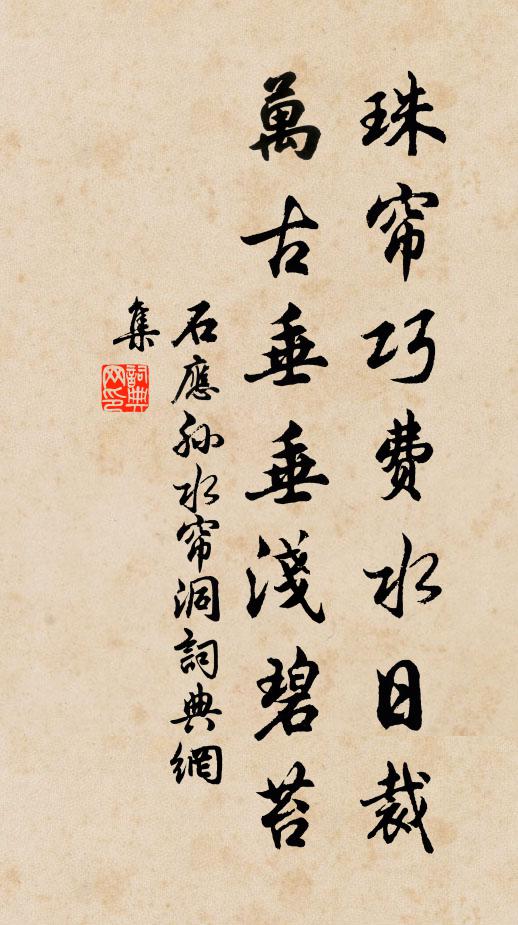 珠帘巧費水日裁
萬古垂垂淺碧苔
石應孙水帘洞詞典網
集
詞典
网印